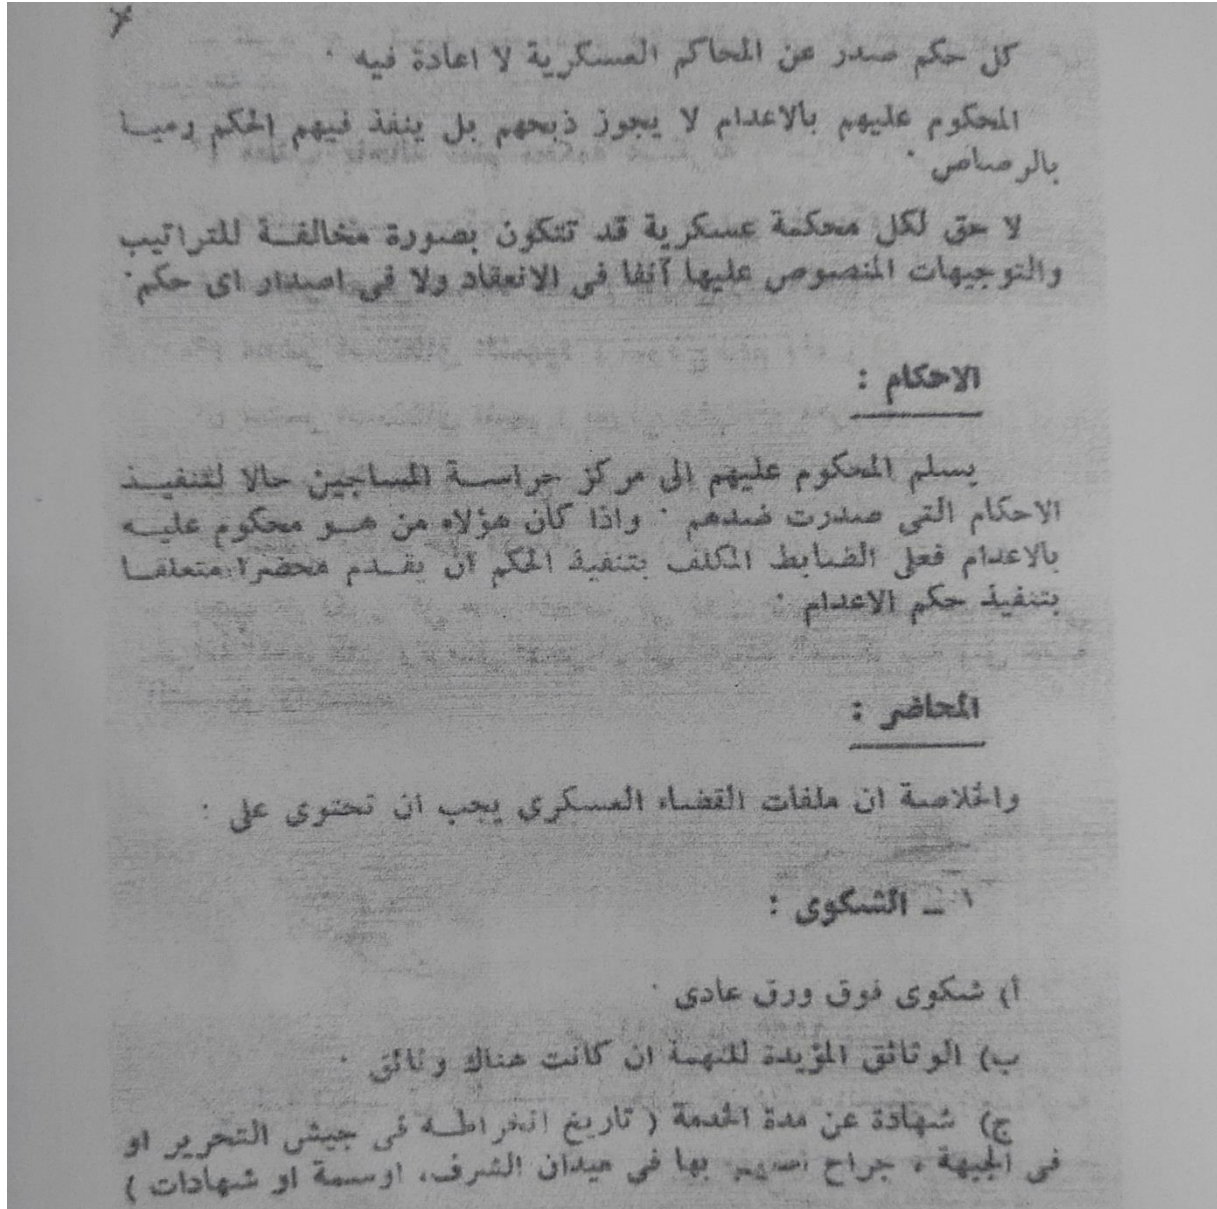 كل حكم صدر عن المحاكم العسكرية لا اعادة فيه ·
المحكوم عليهم بالاعدام لا يجوز ذبحهم بل ينفذ فيهم الحكم رميا
بالرصاص ·
لا حق لكل محكمة عسكرية قد تتكون بصورة مخالفة للتراتيب
والتوجيهات المنصوص عليها آنفا فى الانعقاد ولا فى اصدار اى حكم ·
الاحكام :
يسلم المحكوم عليهم الى مركز حراسة المساجين حالا لتنفيذ
الاحكام التى صدرت ضدهم · واذا كان هؤلاء من هو محكوم عليه
بالاعدام فعلى الضابط المكلف بتنفيذ الحكم ان يقدم محضرا متعلقا
بتنفيذ حكم الاعدام ·
المحاضر :
والخلاصة ان ملفات القضاء العسكرى يجب ان تحتوى على :
١ ــ الشكوى :
أ) شكوى فوق ورق عادى ·
ب) الوثائق المؤيدة للتهمة ان كانت هناك وثائق ·
ج) شهادة عن مدة الخدمة ( تاريخ انخراطه فى جيش التحرير او
فى الجبهة ، جراح بها فى ميدان الشرف، اوسمة او شهادات )